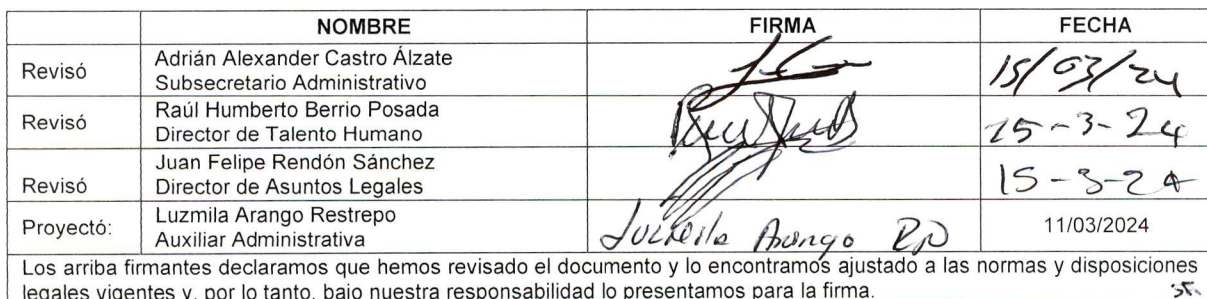 NOMBRE FIRMA FECHA
Revisó Adrián Alexander Castro Álzate
Subsecretario Administrativo 15/03/24
Revisó Raúl Humberto Berrio Posada
Director de Talento Humano 15-3-24
Revisó Juan Felipe Rendón Sánchez
Director de Asuntos Legales 15-3-24
Proyectó: Luzmila Arango Restrepo
Auxiliar Administrativa Luzmila Arango 11/03/2024
Los arriba firmantes declaramos que hemos revisado el documento y lo encontramos ajustado a las normas y disposiciones
legales vigentes y, por lo tanto, bajo nuestra responsabilidad lo presentamos para la firma.